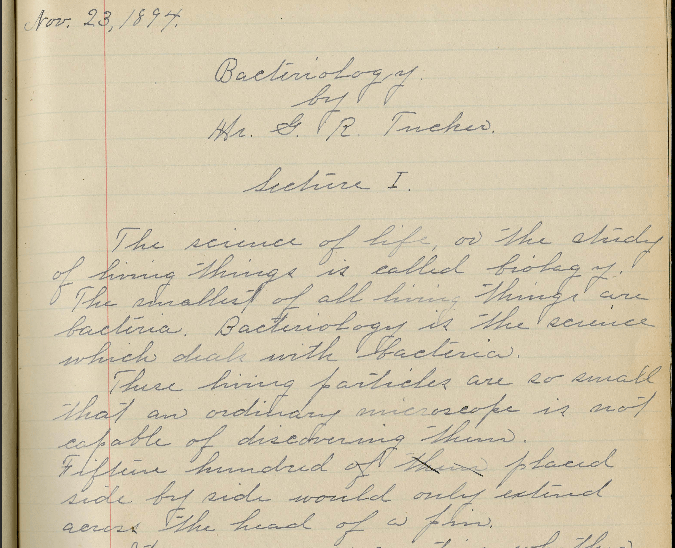 Nov. 23, 1894.
Bacteriology.
by
Mr. G. R. Tucker.
Lecture I.
The science of life, or the study
of living things is called biology.
The smallest of all living things are
bacteria. Bacteriology is the science
which deals with bacteria.
These living particles are so small
that an ordinary microscope is not
capable of discovering them.
Fifteen hundred of them placed
side by side would only extend
across the head of a pin.